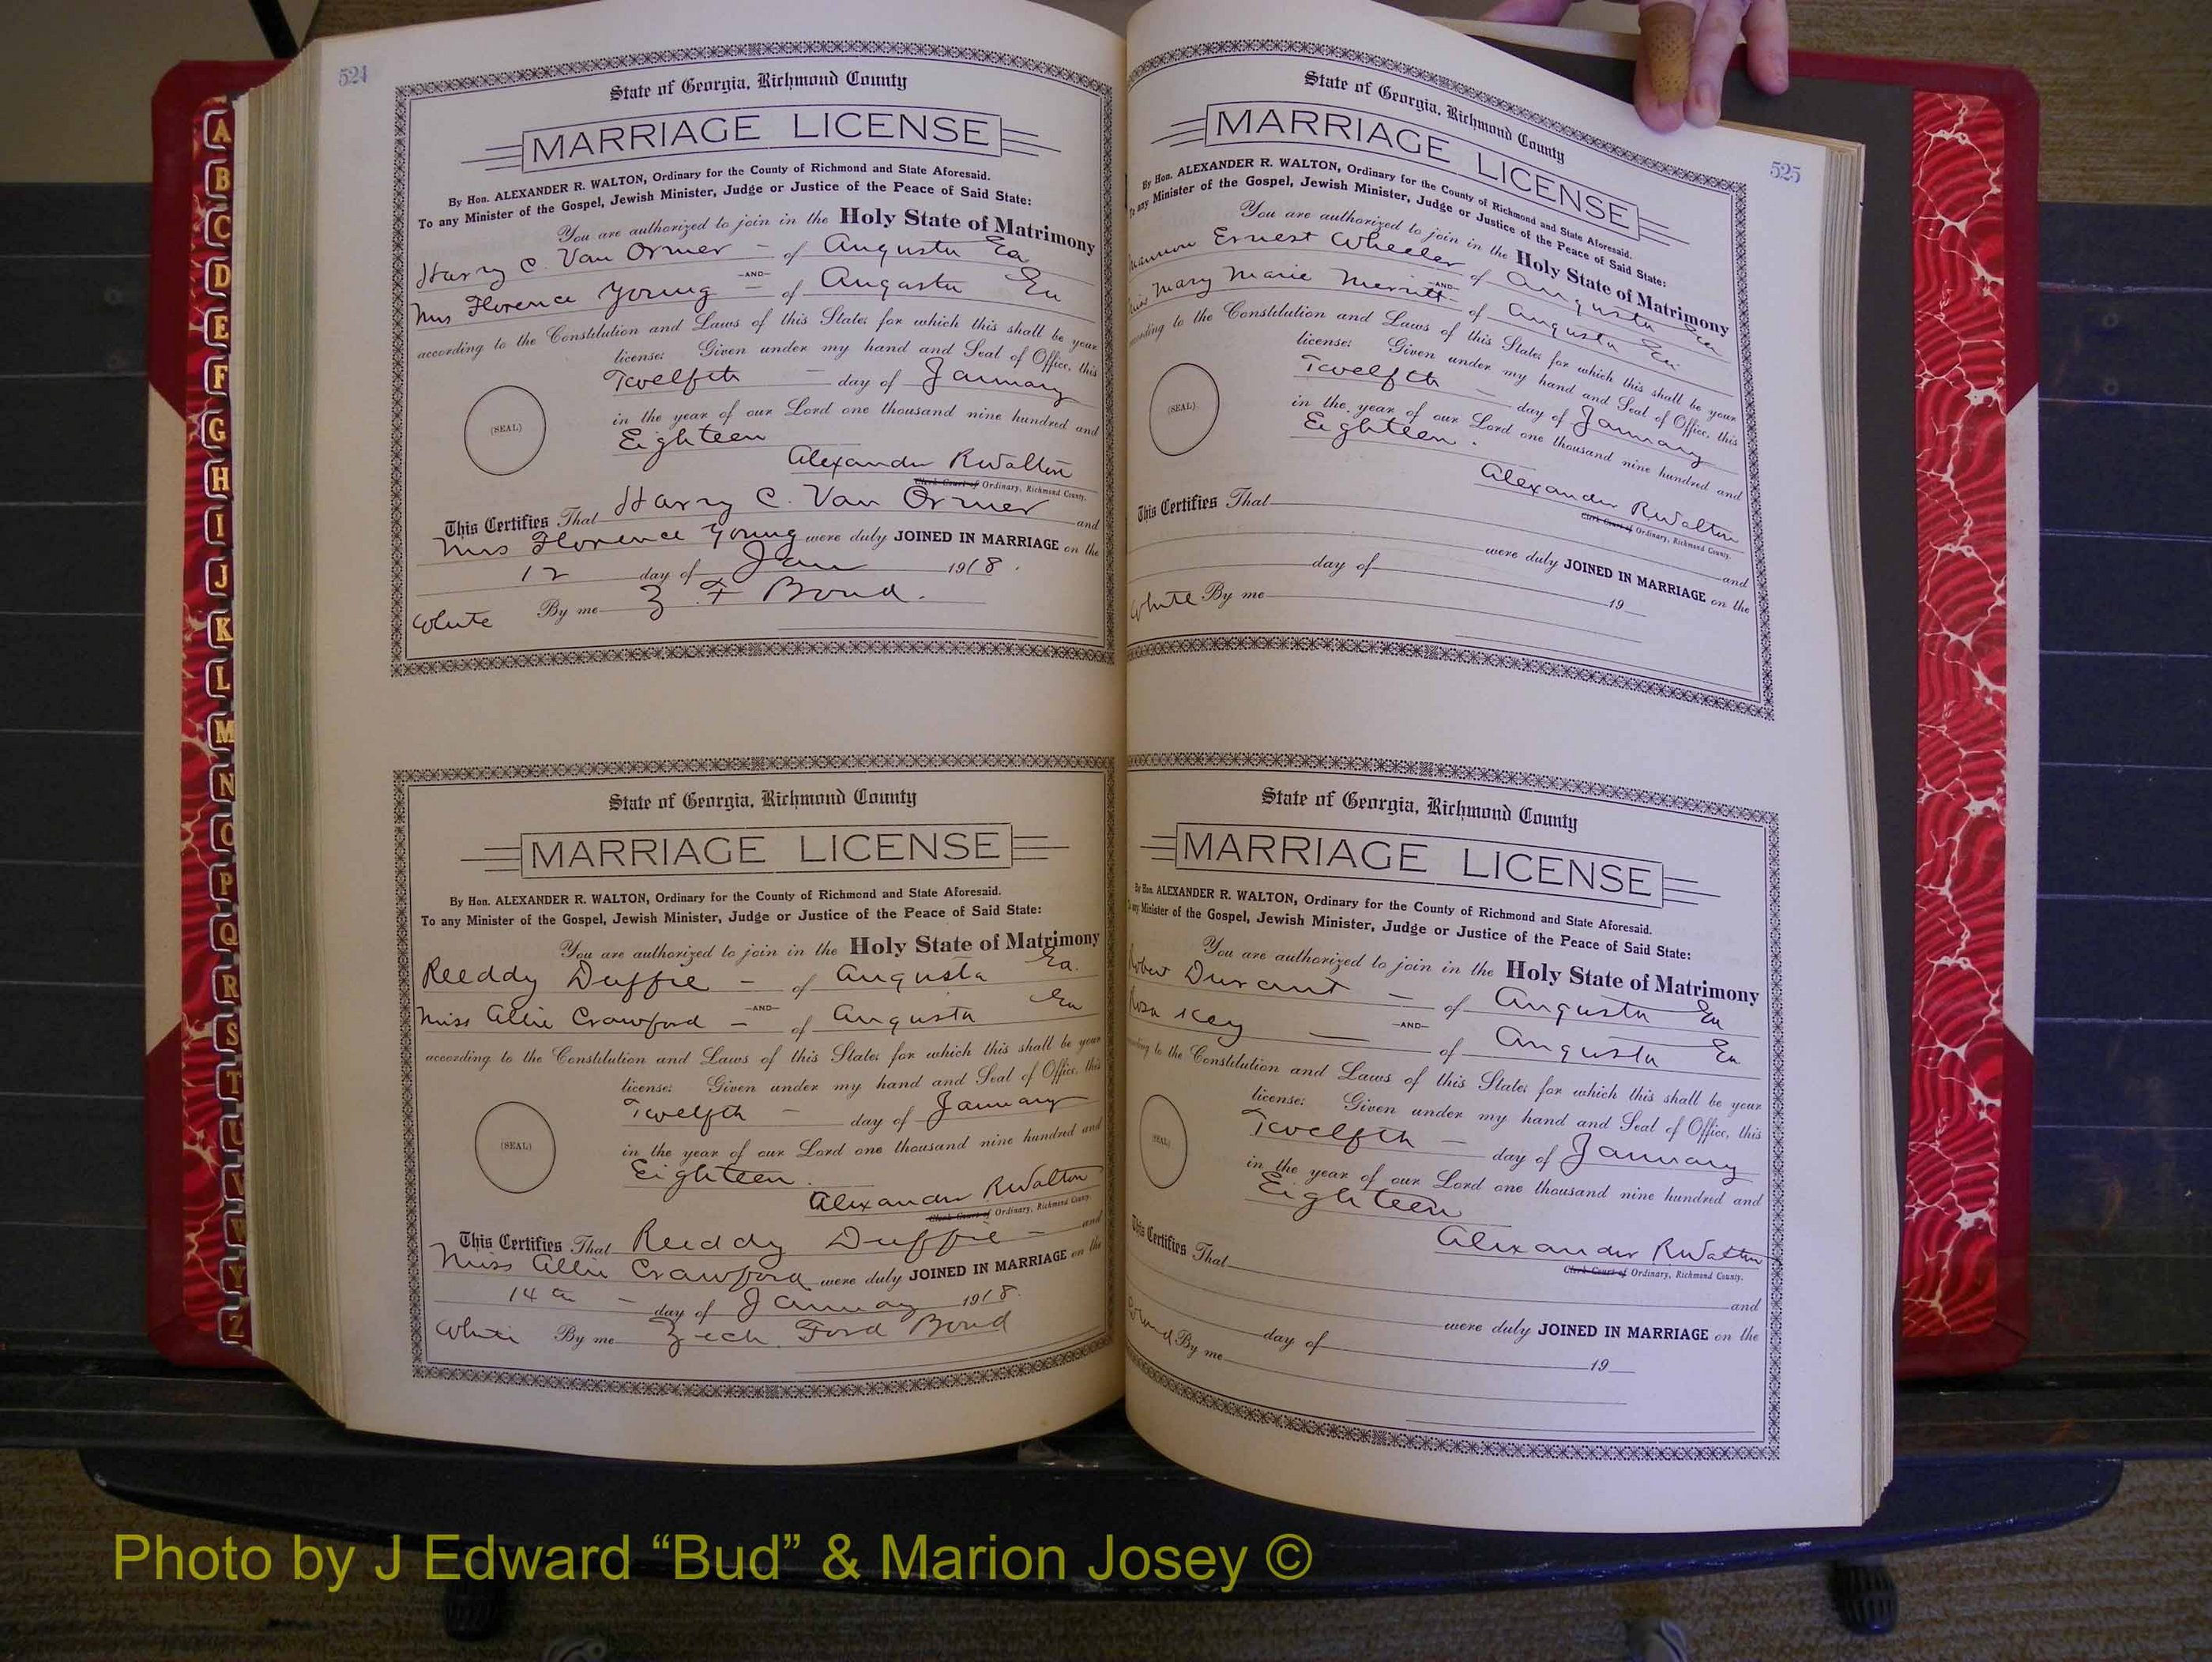 524
State of Georgia, Richmond County
MARRIAGE LICENSE
By Hon. ALEXANDER R. WALTON, Ordinary for the County of Richmond and State Aforesaid.
To any Minister of the Gospel, Jewish Minister, Judge or Justice of the Peace of Said State:
You are authorized to join in the Holy State of Matrimony
Harry C. Van Ormer - of Augusta Ga
-AND-
Mrs Florence Young - of Augusta Ga
according to the Constitution and Laws of this State; for which this shall be your
license: Given under my hand and Seal of Office, this
Twelfth - day of January
in the year of our Lord one thousand nine hundred and
Eighteen
(SEAL)
Alexander R Walton
Clerk Court of Ordinary, Richmond County.
This Certifies That Harry C. Van Ormer and
Mrs Florence Young were duly JOINED IN MARRIAGE on the
12 day of Jan 1918.
White By me Z. F Bond.
State of Georgia, Richmond County
MARRIAGE LICENSE
By Hon. ALEXANDER R. WALTON, Ordinary for the County of Richmond and State Aforesaid.
To any Minister of the Gospel, Jewish Minister, Judge or Justice of the Peace of Said State:
You are authorized to join in the Holy State of Matrimony
Reeddy Duffie - of Augusta Ga.
-AND-
Miss Allie Crawford - of Augusta Ga
according to the Constitution and Laws of this State; for which this shall be your
license: Given under my hand and Seal of Office, this
Twelfth - day of January
in the year of our Lord one thousand nine hundred and
Eighteen.
(SEAL)
Alexander R Walton
Clerk Court of Ordinary, Richmond County.
This Certifies That Reeddy Duffie - and
Miss Allie Crawford were duly JOINED IN MARRIAGE on the
14 - day of January 1918.
White By me Zech. Ford Bond
525
State of Georgia, Richmond County
MARRIAGE LICENSE
By Hon. ALEXANDER R. WALTON, Ordinary for the County of Richmond and State Aforesaid.
To any Minister of the Gospel, Jewish Minister, Judge or Justice of the Peace of Said State:
You are authorized to join in the Holy State of Matrimony
Ernest Wheeler of Augusta Ga
-AND-
Miss Mary Marie Merritt - of Augusta Ga
according to the Constitution and Laws of this State; for which this shall be your
license: Given under my hand and Seal of Office, this
Twelfth - day of January
in the year of our Lord one thousand nine hundred and
Eighteen.
(SEAL)
Alexander R Walton
Clerk Court of Ordinary, Richmond County.
This Certifies That and
were duly JOINED IN MARRIAGE on the
day of 19
White By me
State of Georgia, Richmond County
MARRIAGE LICENSE
By Hon. ALEXANDER R. WALTON, Ordinary for the County of Richmond and State Aforesaid.
To any Minister of the Gospel, Jewish Minister, Judge or Justice of the Peace of Said State:
You are authorized to join in the Holy State of Matrimony
Robert Durant - of Augusta Ga
-AND-
Rosa Key - of Augusta Ga
according to the Constitution and Laws of this State; for which this shall be your
license: Given under my hand and Seal of Office, this
Twelfth - day of January
in the year of our Lord one thousand nine hundred and
Eighteen
(SEAL)
Alexander R Walton
Clerk Court of Ordinary, Richmond County.
This Certifies That
and
were duly JOINED IN MARRIAGE on the
day of 19
By me
A
B
C
D
E
F
G
H
I
J
K
L
M
N
O
P
Q
R
S
T
U
V
W
Y
Z
Photo by J Edward “Bud” & Marion Josey ©